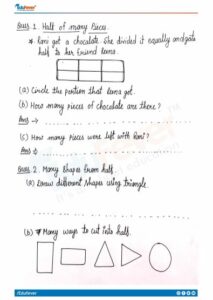 Edufever
Ques 1. Half of many pieces.
* Rani got a chocolate. She divided it equally and gave
half to her friend Reena.
(a) Circle the portion that Reena got.
(b) How many pieces of chocolate are there?
Ans →
(c) How many pieces were left with Rani?
Ans →
Ques 2. Many Shapes from half.
(a) Draw different shapes using triangle.
(b) Many ways to cut into half.